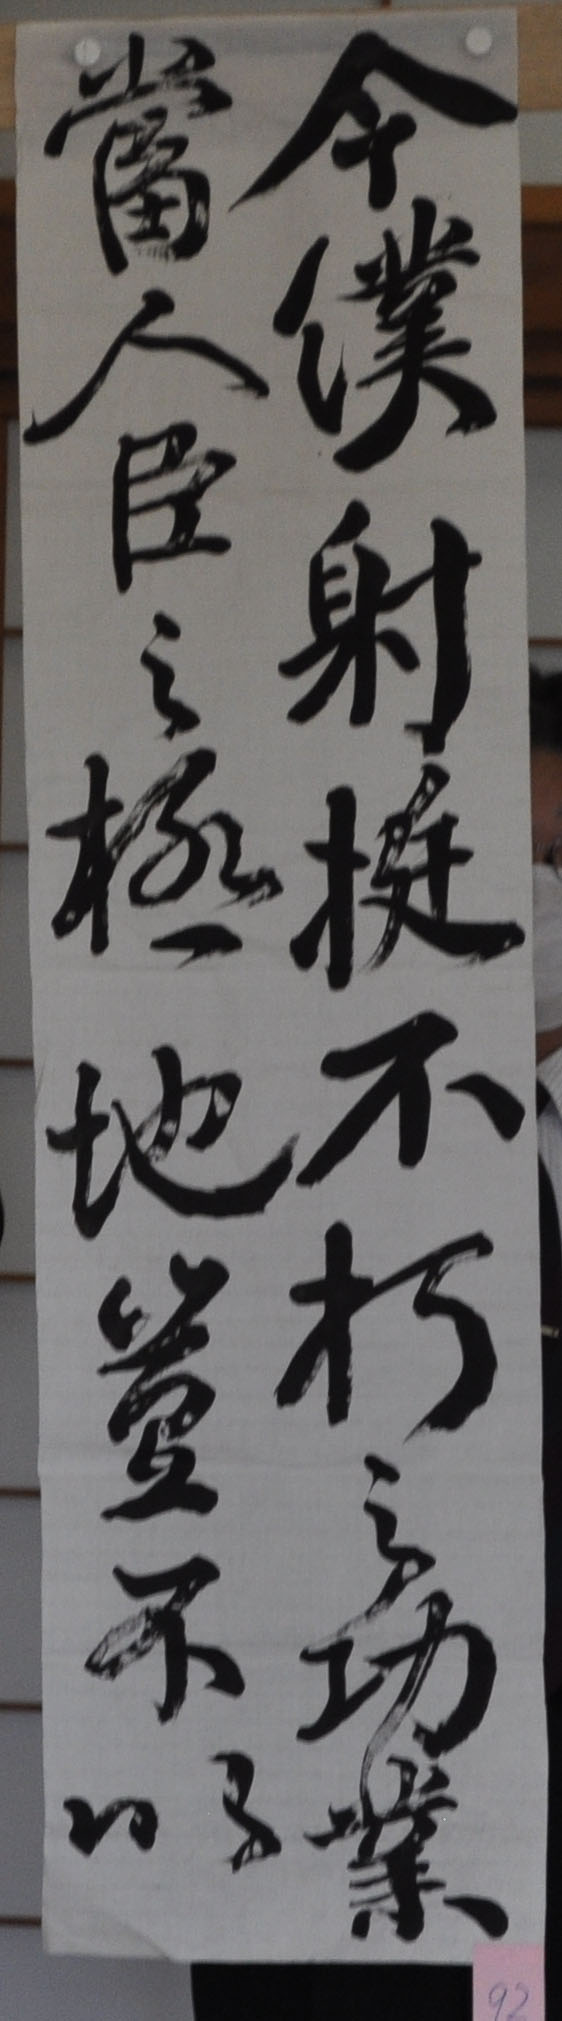 今僕射挺不朽之功業
當人臣之極地豈不以
92